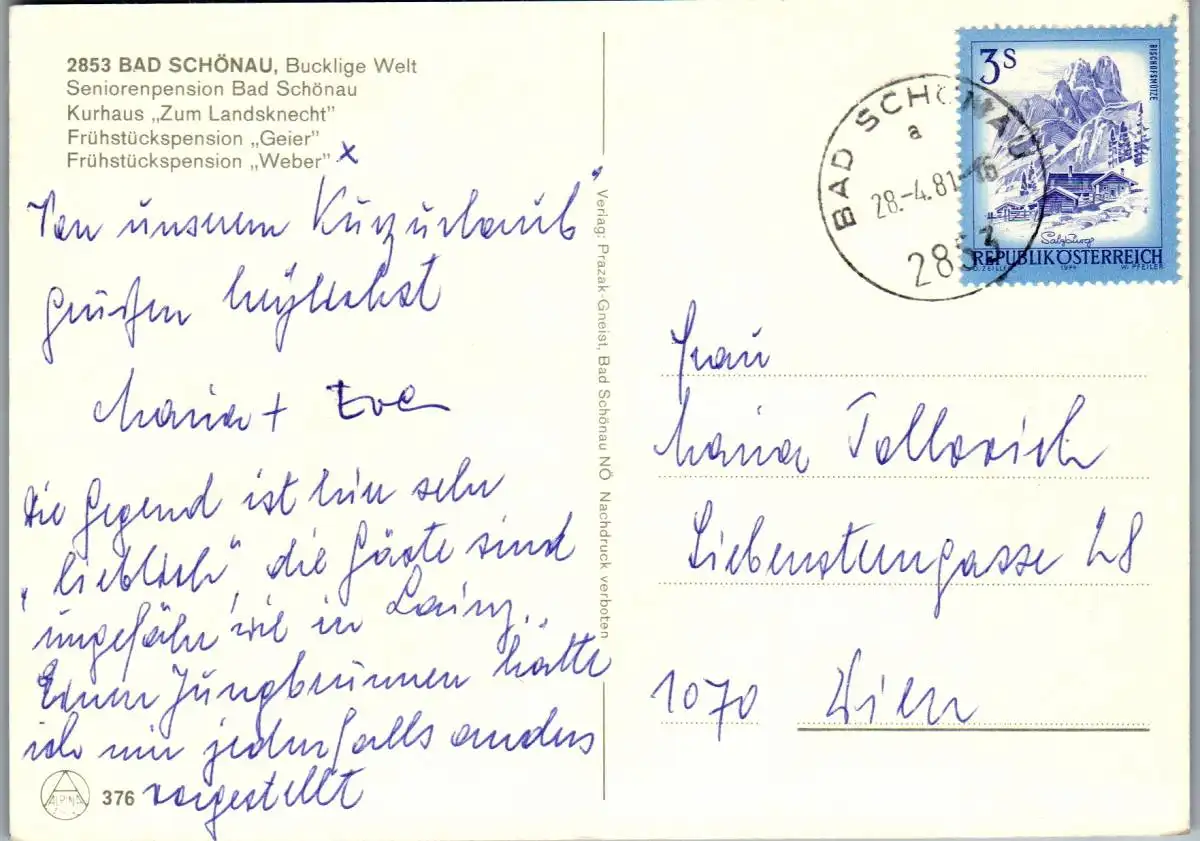 2853 BAD SCHÖNAU, Bucklige Welt
Seniorenpension Bad Schönau
Kurhaus „Zum Landsknecht"
Frühstückspension „Geier"
Frühstückspension „Weber" x
Von unserem Kurzurlaub
grüßen herzlichst
Maria + Eva
Die Gegend ist hier sehr
„lieblich", die Gäste sind
ungefähr wie in Lainz.
Einen Jungbrunnen hätte
ich mir jedenfalls anders
vorgestellt
ALPINA
376
Verlag: Prazak-Gneist, Bad Schönau NÖ Nachdruck verboten
BAD SCHÖNAU
a
28.-4.81-16
2853
3S
BISCHOFSMÜTZE
Salzburg
REPUBLIK ÖSTERREICH
O. ZEILLER 1974 W. PFEILER
Frau
Maria
Siebensterngasse 28
1070 Wien